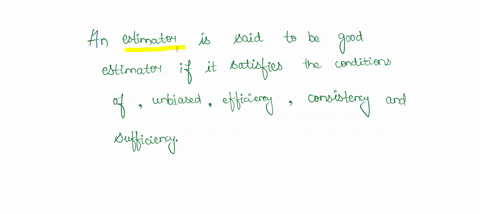 An estimator, is said to be good
estimator if it satisfies the conditions
of , unbiased, efficiency, consistency and
sufficiency.